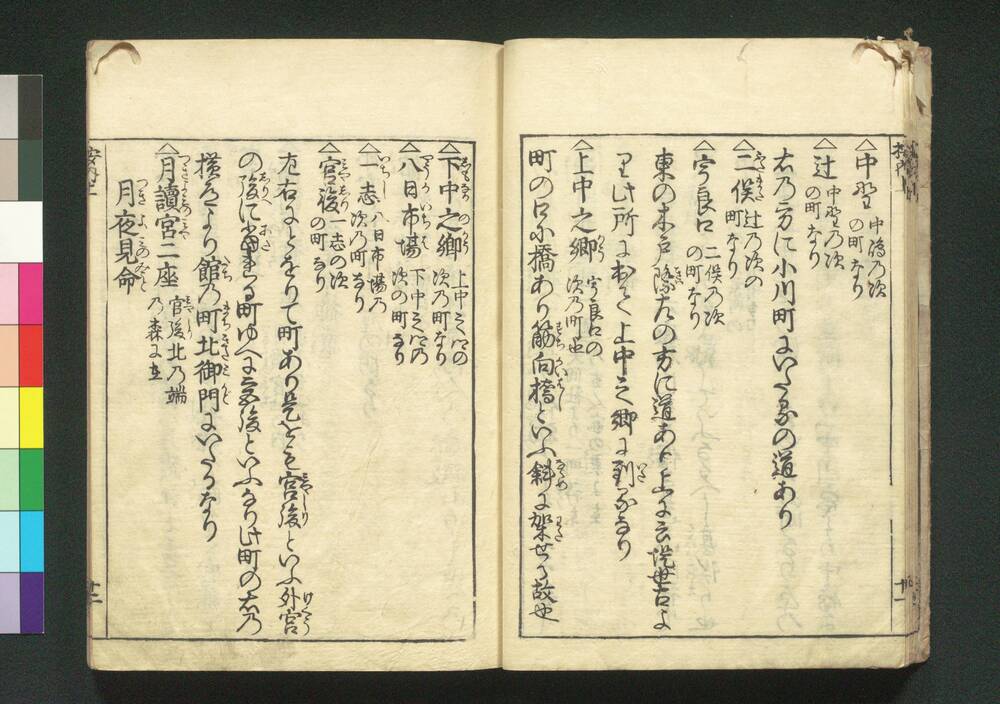 △中野 中嶋乃次
の町なり
△辻 中野乃次
の町なり
右乃方に小川町にいたるの道あり
△二俣 辻乃次の
町なり
△宇良口 二俣乃次
の町なり
東の木戸際左の方に道あり上に云世古よ
り此所に出て上中之郷に到るなり
△上中之郷 宇良口の
次乃町也
町の口小橋あり筋向橋といふ斜に架せる故也
△下中之郷 上中之江の
次乃町なり
△八日市場 下中之江の
次の町なり
△一志 八日市場乃
次乃町なり
△宮後 一志の次
の町なり
左右にとをりて町あり是をも宮後といふ外宮
の後にあたる町ゆへに宮後といふなり此町の右乃
横道より館乃町北御門にいたるなり
△月讀宮二座 宮後北乃端
乃森に在
月夜見命